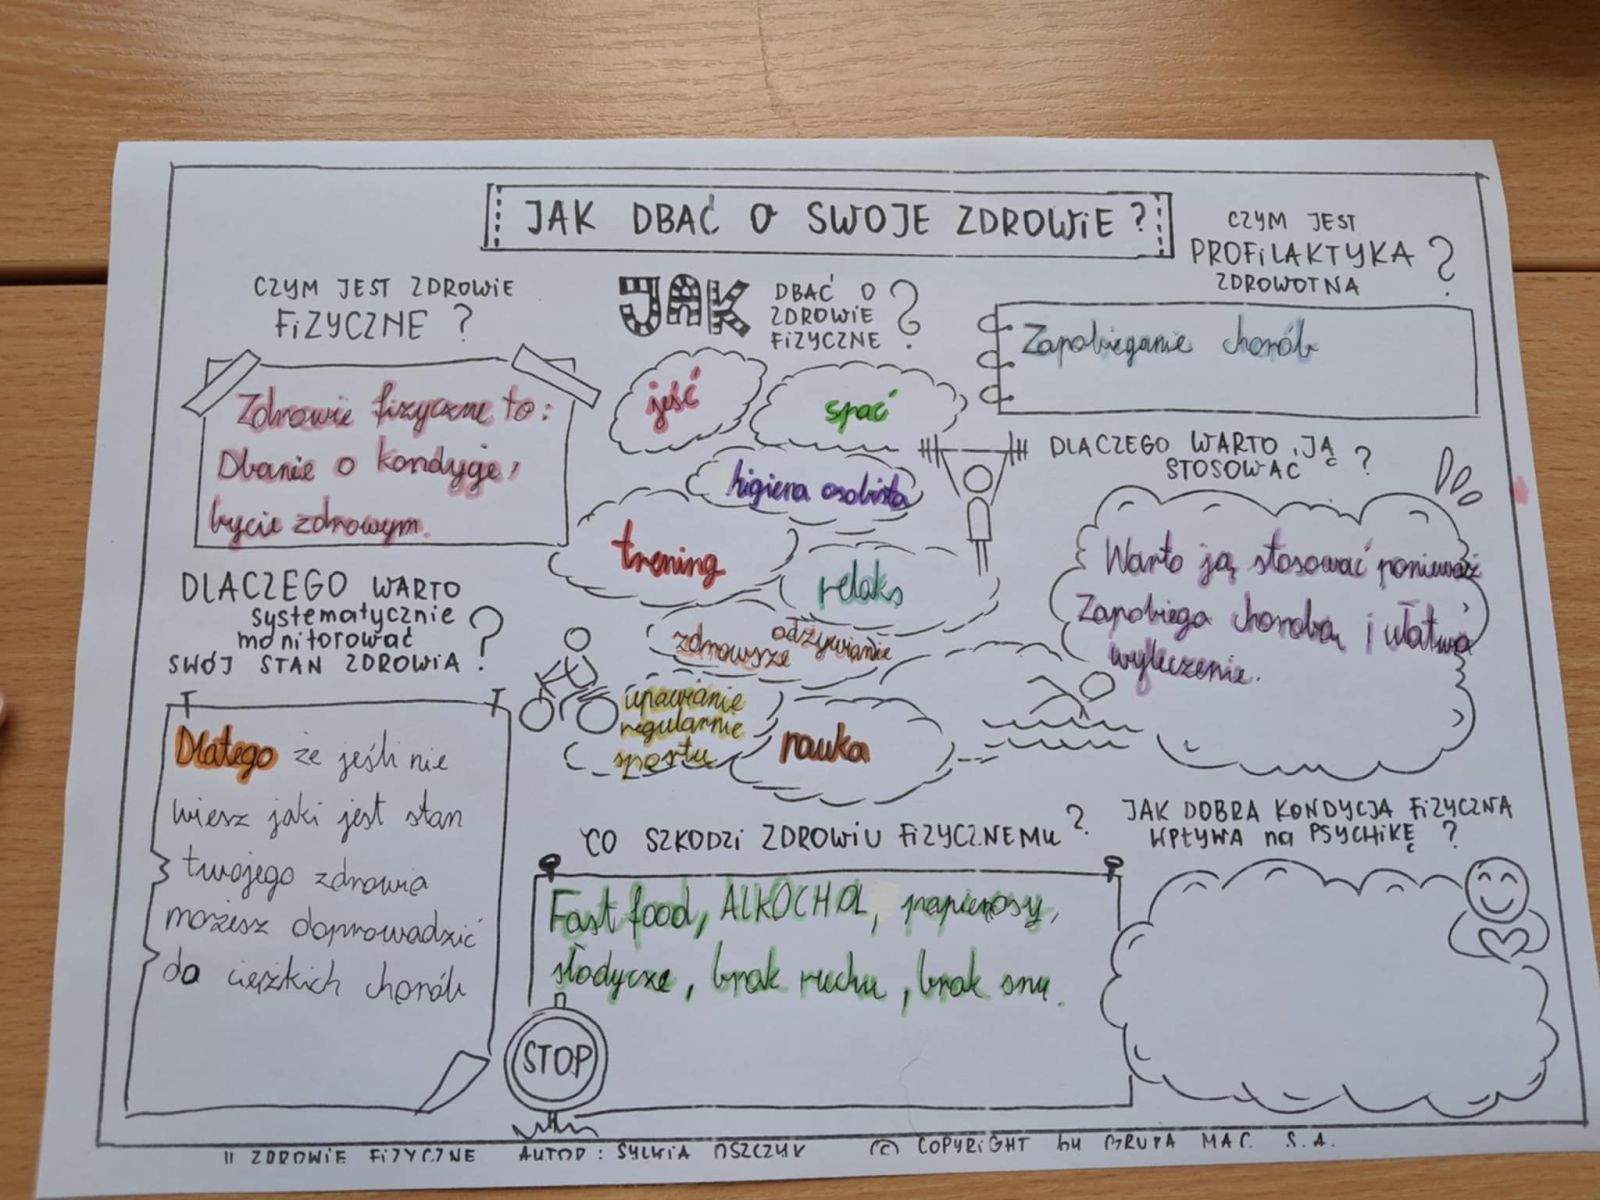 JAK DBAĆ O SWOJE ZDROWIE?
CZYM JEST ZDROWIE
FIZYCZNE?
Zdrowie fizyczne to:
Dbanie o kondycję,
bycie zdrowym.
DLACZEGO WARTO
systematycznie
monitorować
SWÓJ STAN ZDROWIA?
Dlatego że jeśli nie
wiesz jaki jest stan
twojego zdrowia
możesz doprowadzić
do ciężkich chorób
JAK DBAĆ O
ZDROWIE
FIZYCZNE?
jeść
spać
higiena osobista
trening
relaks
zdrowsze odżywianie
uprawianie
regularnie
sportu
nauka
CZYM JEST
PROFILAKTYKA
ZDROWOTNA?
Zapobieganie chorób
DLACZEGO WARTO JĄ
STOSOWAĆ?
Warto ją stosować ponieważ
Zapobiega chorobą i ułatwia
wyleczenie.
CO SZKODZI ZDROWIU FIZYCZNEMU?
Fast food, ALKOCHOL, papierosy,
słodycze, brak ruchu, brak snu.
STOP
JAK DOBRA KONDYCJA FIZYCZNA
WPŁYWA na PSYCHIKĘ?
II ZDROWIE FIZYCZNE AUTOR: SYLWIA OSZCZYK © COPYRIGHT by GRUPA MAC S.A.